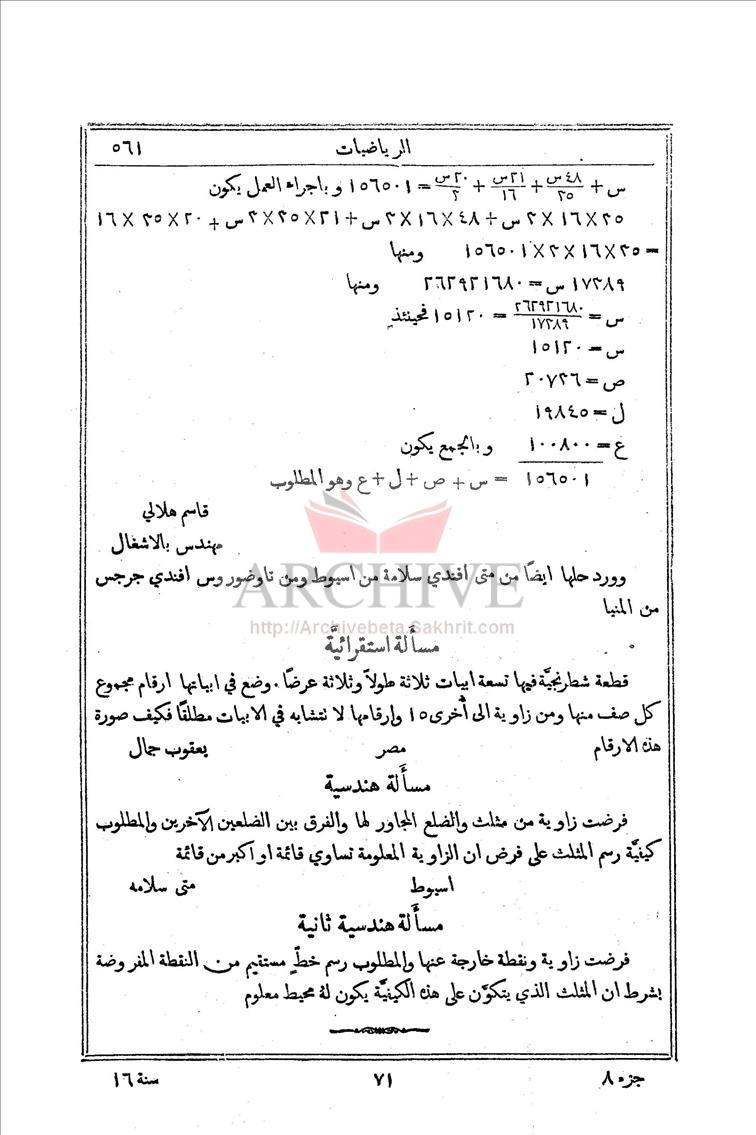 الرياضيات ٥٦١
س + ٤٨ س/٣٥ + ٢١ س/١٦ + ٢٠ س/٣ = ١٥٦٥٠١ و باجراء العمل يكون
٣٥ × ١٦ × ٣ س + ٤٨ × ١٦ × ٣ س + ٢١ × ٣٥ × ٣ س + ٢٠ × ٣٥ × ١٦
= ٣٥ × ١٦ × ٣ × ١٥٦٥٠١ ومنها
١٧٣٨٩ س = ٢٦٢٩٢١٦٨٠ ومنها
س = ٢٦٢٩٢١٦٨٠/١٧٣٨٩ = ١٥١٢٠ فحينئذٍ
س = ١٥١٢٠
ص = ٢٠٧٣٦
ل = ١٩٨٤٥
ع = ١٠٠٨٠٠ و بالجمع يكون
١٥٦٥٠١ = س + ص + ل + ع وهو المطلوب
قاسم هلالي
مهندس بالاشغال
وورد حلها ايضًا من متى افندي سلامة من اسيوط ومن تاوضوروس افندي جرجس
من المنيا
ARCHIVE
http://Archivebeta.Sakhrit.com
مسأَلة استقرائيَّة
قطعة شطرنجيَّة فيها تسعة ابيات ثلاثة طولًا وثلاثة عرضًا. وضع في ابياتها ارقام مجموع
كل صف منها ومن زاوية الى أُخرى ١٥ وارقامها لا تتشابه في الابيات مطلقًا فكيف صورة
هذه الارقام مصر يعقوب جمال
مسأَلة هندسية
فرضت زاوية من مثلث والضلع المجاور لها والفرق بين الضلعين الآخرين والمطلوب
كيفيَّة رسم المثلث على فرض ان الزاوية المعلومة تساوي قائمة او اكبر من قائمة
اسيوط متى سلامه
مسأَلة هندسية ثانية
فرضت زاوية ونقطة خارجة عنها والمطلوب رسم خطٍّ مستقيم من النقطة المفروضة
بشرط ان المثلث الذي يتكوَّن على هذه الكيفيَّة يكون لهُ محيط معلوم
جزء ٨ ٧١ سنة ١٦